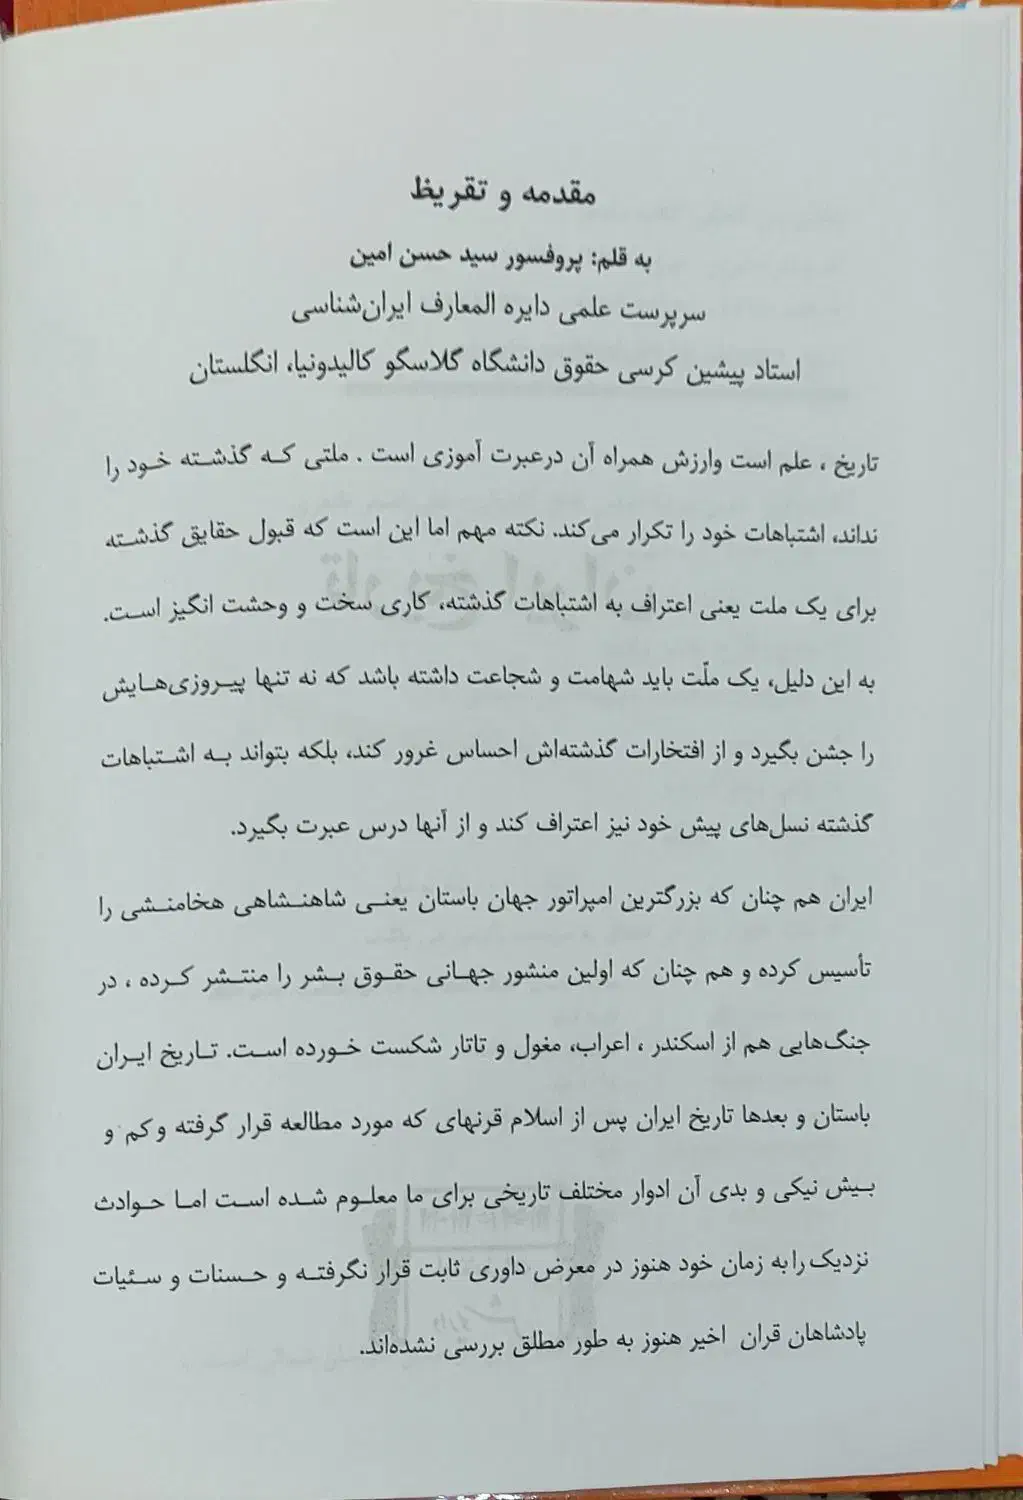 مقدمه و تقریظ
به قلم: پروفسور سید حسن امین
سرپرست علمی دایره المعارف ایران‌شناسی
استاد پیشین کرسی حقوق دانشگاه گلاسگو کالیدونیا، انگلستان
تاریخ ، علم است وارزش همراه آن درعبرت آموزی است . ملتی که گذشته خود را
نداند، اشتباهات خود را تکرار می‌کند. نکته مهم اما این است که قبول حقایق گذشته
برای یک ملت یعنی اعتراف به اشتباهات گذشته، کاری سخت و وحشت انگیز است.
به این دلیل، یک ملّت باید شهامت و شجاعت داشته باشد که نه تنها پیروزی‌هایش
را جشن بگیرد و از افتخارات گذشته‌اش احساس غرور کند، بلکه بتواند به اشتباهات
گذشته نسل‌های پیش خود نیز اعتراف کند و از آنها درس عبرت بگیرد.
ایران هم چنان که بزرگترین امپراتور جهان باستان یعنی شاهنشاهی هخامنشی را
تأسیس کرده و هم چنان که اولین منشور جهانی حقوق بشر را منتشر کرده ، در
جنگ‌هایی هم از اسکندر ، اعراب، مغول و تاتار شکست خورده است. تاریخ ایران
باستان و بعدها تاریخ ایران پس از اسلام قرنهای که مورد مطالعه قرار گرفته وکم و
بیش نیکی و بدی آن ادوار مختلف تاریخی برای ما معلوم شده است اما حوادث
نزدیک رابه زمان خود هنوز در معرض داوری ثابت قرار نگرفته و حسنات و سئیات
پادشاهان قران اخیر هنوز به طور مطلق بررسی نشده‌اند.